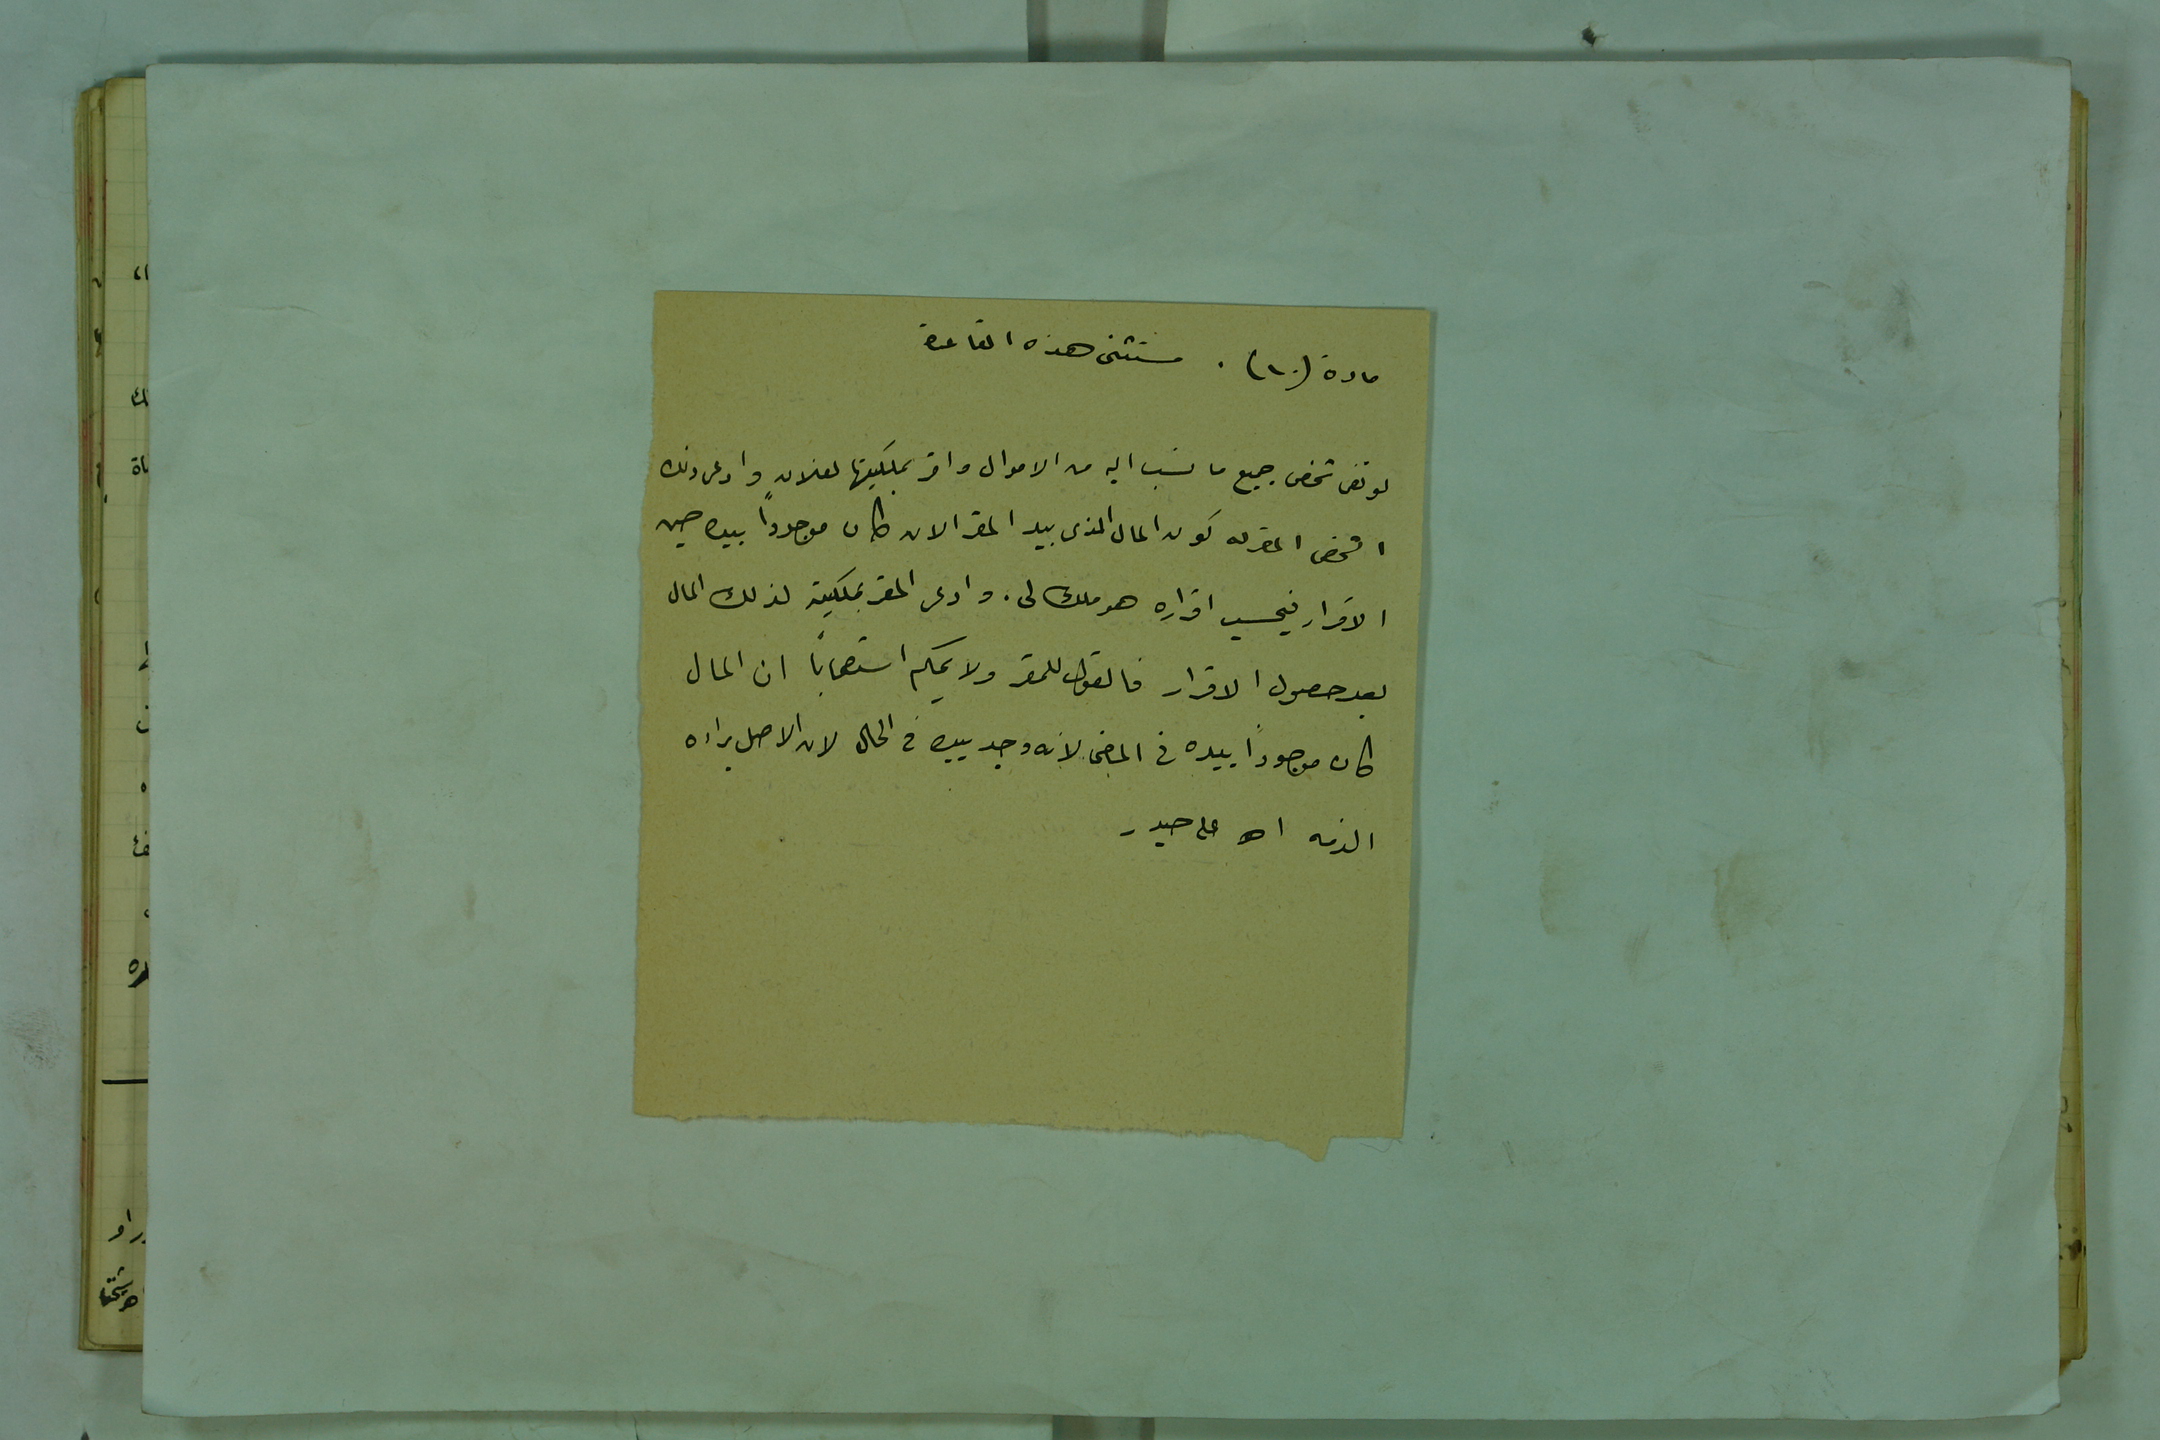 مادة (١٠) . مستثنى هذه القاعدة
لو نفى شخص جميع ما نسب اليه من الاموال واقر بملكيتها لفلان وادعى ذلك
الشخص المقر له كون المال الذي بيد المقر الان كان موجوداً بيده حين
الاقرار فبحسب اقراره هو ملك لي . وادعى المقر بملكيته لذلك المال
بعد حصول الاقرار فالقول للمقر ولا يحكم استصحاباً ان المال
كان موجوداً بيده في الماضي لانه وجد بيده في الحال لان الاصل براءه
الذمه اهـ علي حيدر